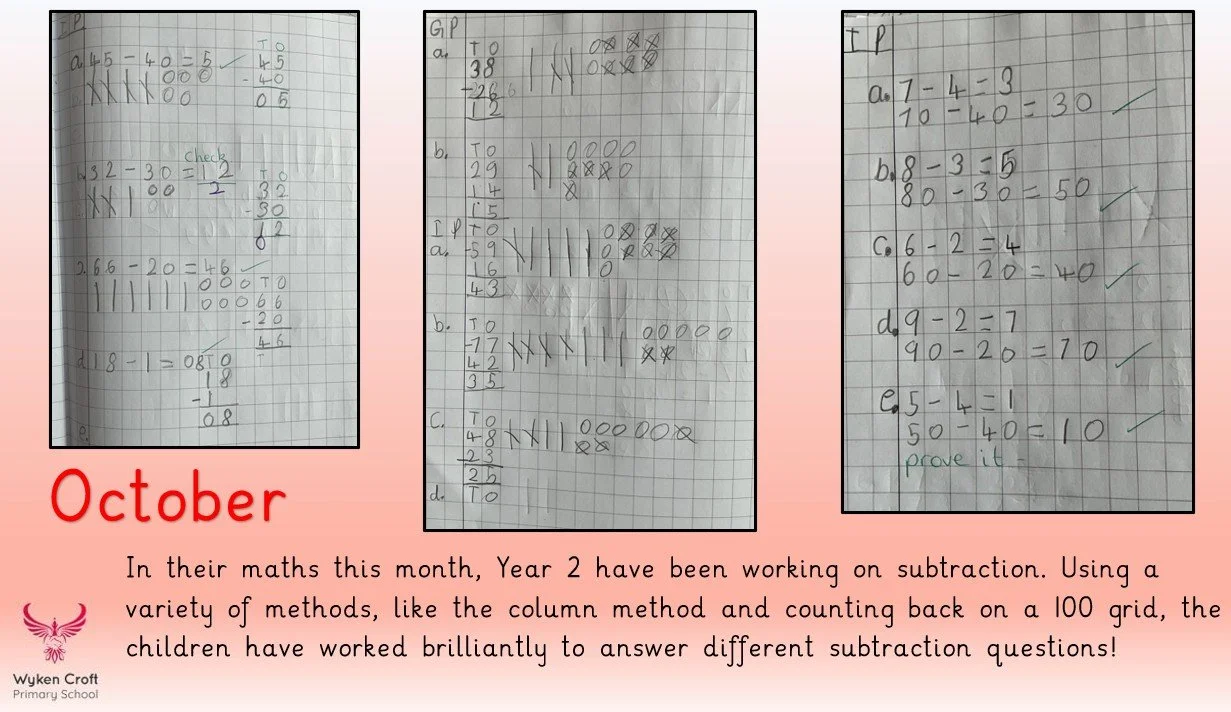 IP
a. 45 - 40 = 5
T O
45
- 40
05
check
b. 32 - 30 = 12
2
T O
32
- 30
02
c. 66 - 20 = 46
T O
66
- 20
46
T
d. 18 - 1 = 08
T O
18
- 1
08
e.
GP
a.
T O
38
- 26 6
12
b.
T O
29
14
15
IP
a.
T O
- 59
16
43
b.
T O
- 77
42
35
c.
T O
48
- 23
25
d.
T O
IP
a. 7 - 4 = 3
70 - 40 = 30
b. 8 - 3 = 5
80 - 30 = 50
c. 6 - 2 = 4
60 - 20 = 40
d. 9 - 2 = 7
90 - 20 = 70
e. 5 - 4 = 1
50 - 40 = 10
prove it -
October
In their maths this month, Year 2 have been working on subtraction. Using a
variety of methods, like the column method and counting back on a 100 grid, the
children have worked brilliantly to answer different subtraction questions!
Wyken Croft
Primary School